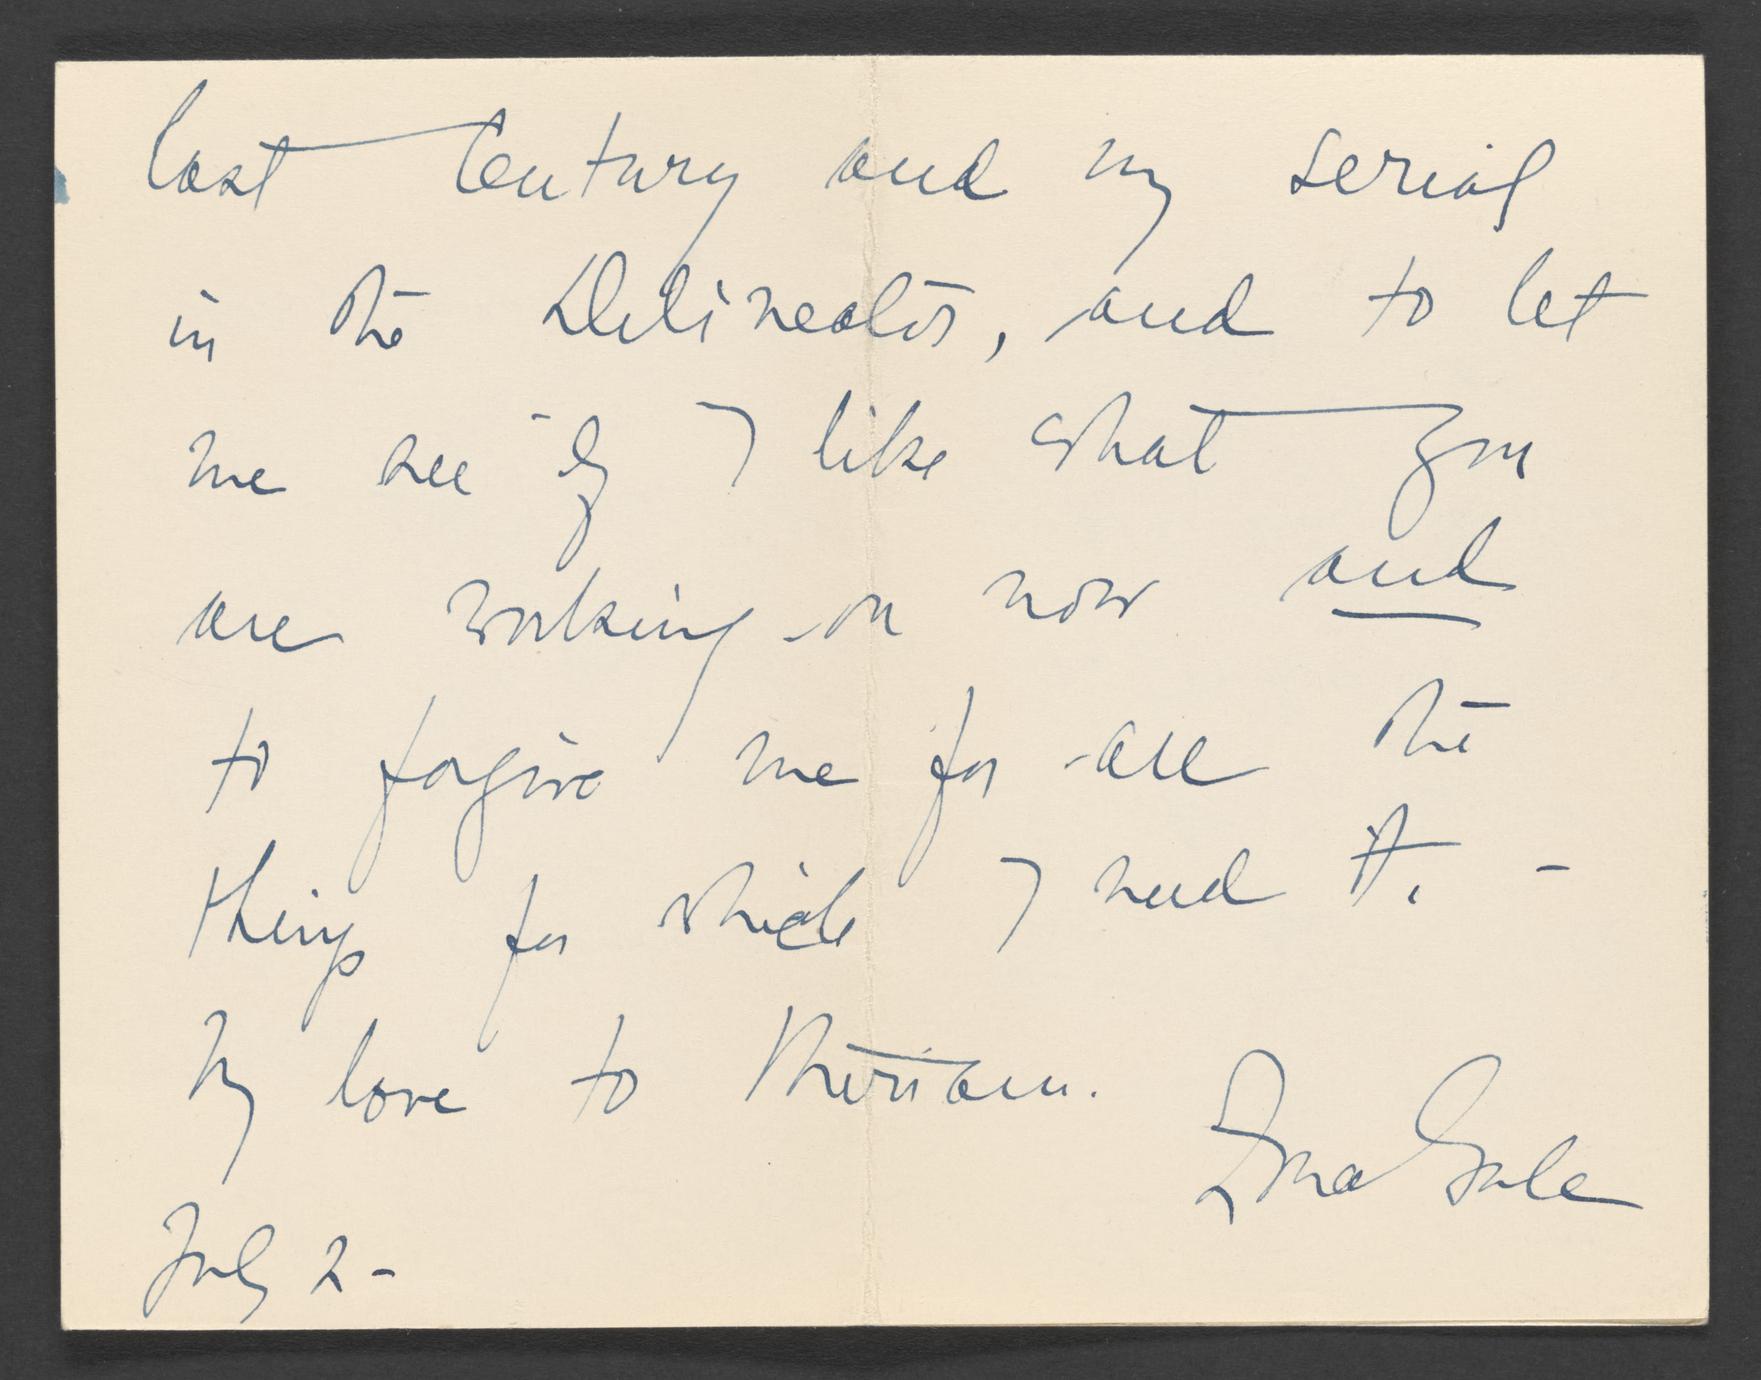 last Century and my serial
in the Delineator, and to let
me see if I like what you
are working on now and
to forgive me for all the
things for which I need it. -
My love to Miriam.
Zona Gale
July 2 -